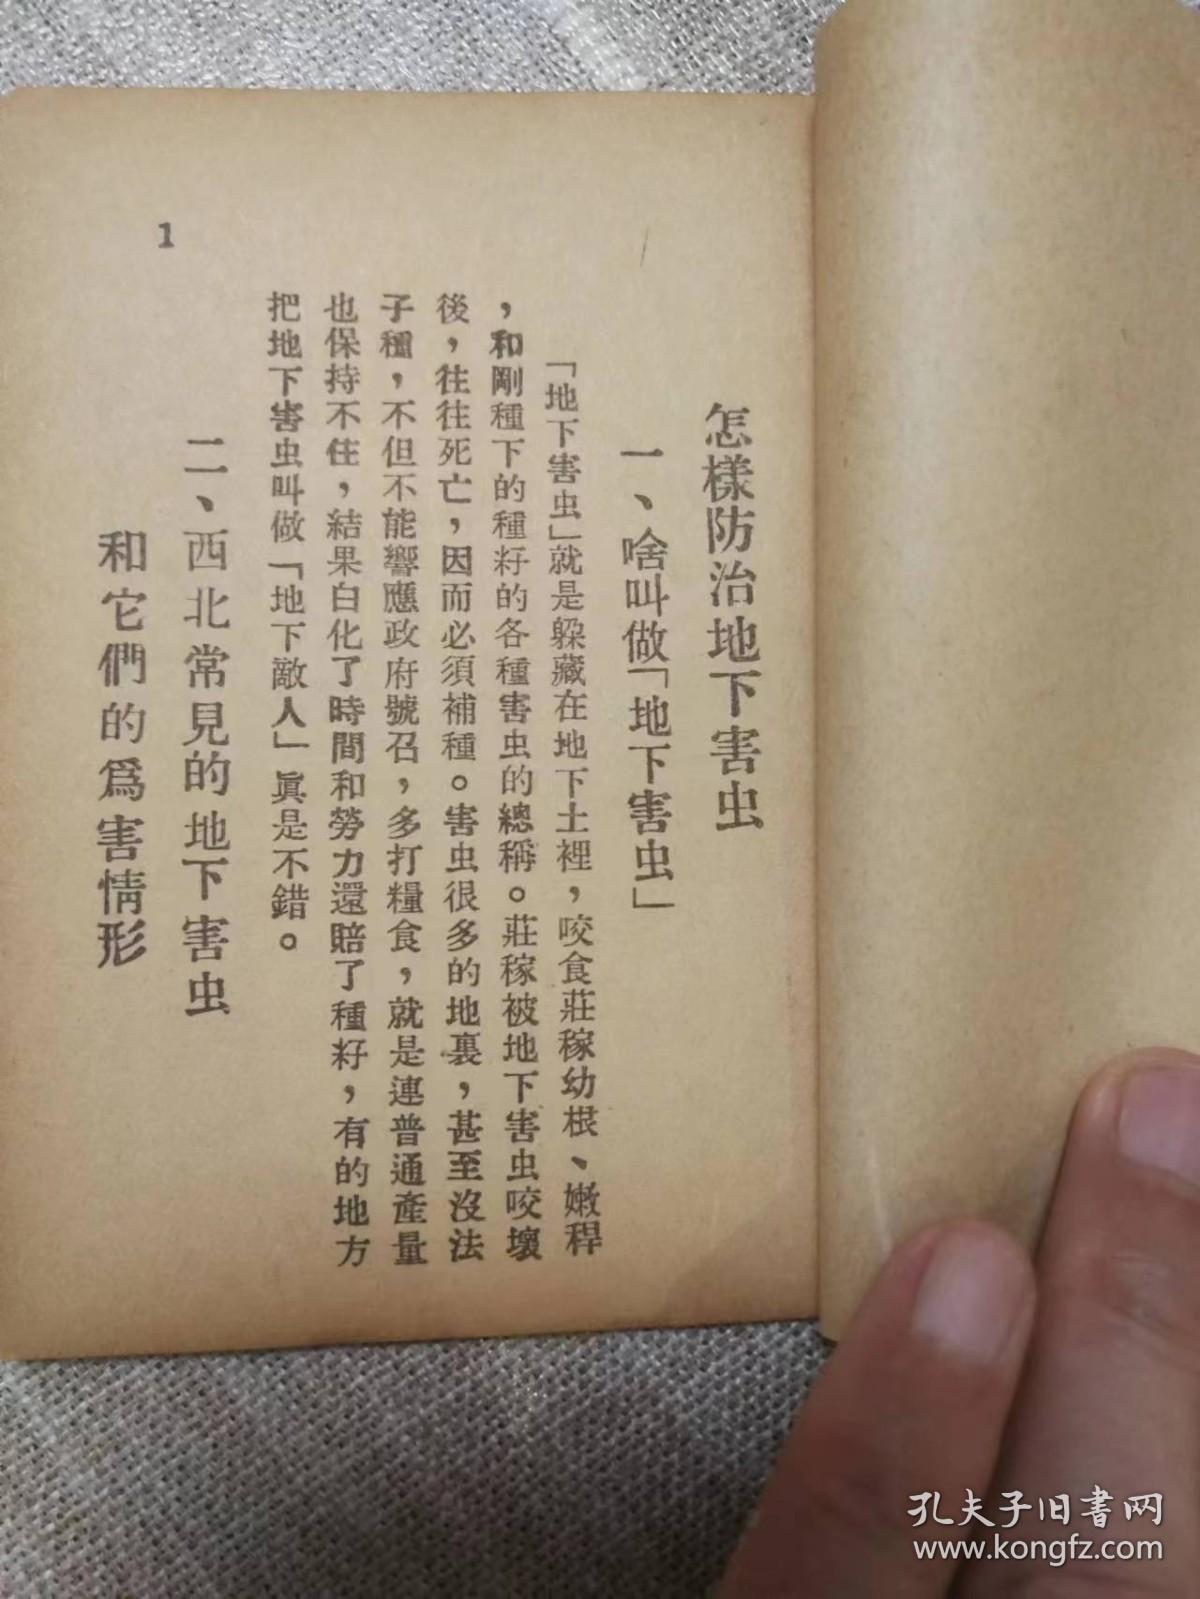 怎樣防治地下害虫
一、啥叫做「地下害虫」
「地下害虫」就是躲藏在地下土裡，咬食莊稼幼根、嫩稈
，和剛種下的種籽的各種害虫的總稱。莊稼被地下害虫咬壞
後，往往死亡，因而必須補種。害虫很多的地裏，甚至沒法
子種，不但不能響應政府號召，多打糧食，就是連普通產量
也保持不住，結果白化了時間和勞力還賠了種籽，有的地方
把地下害虫叫做「地下敵人」眞是不錯。
二、西北常見的地下害虫
和它們的爲害情形
1
孔夫子旧书网
www.kongfz.com